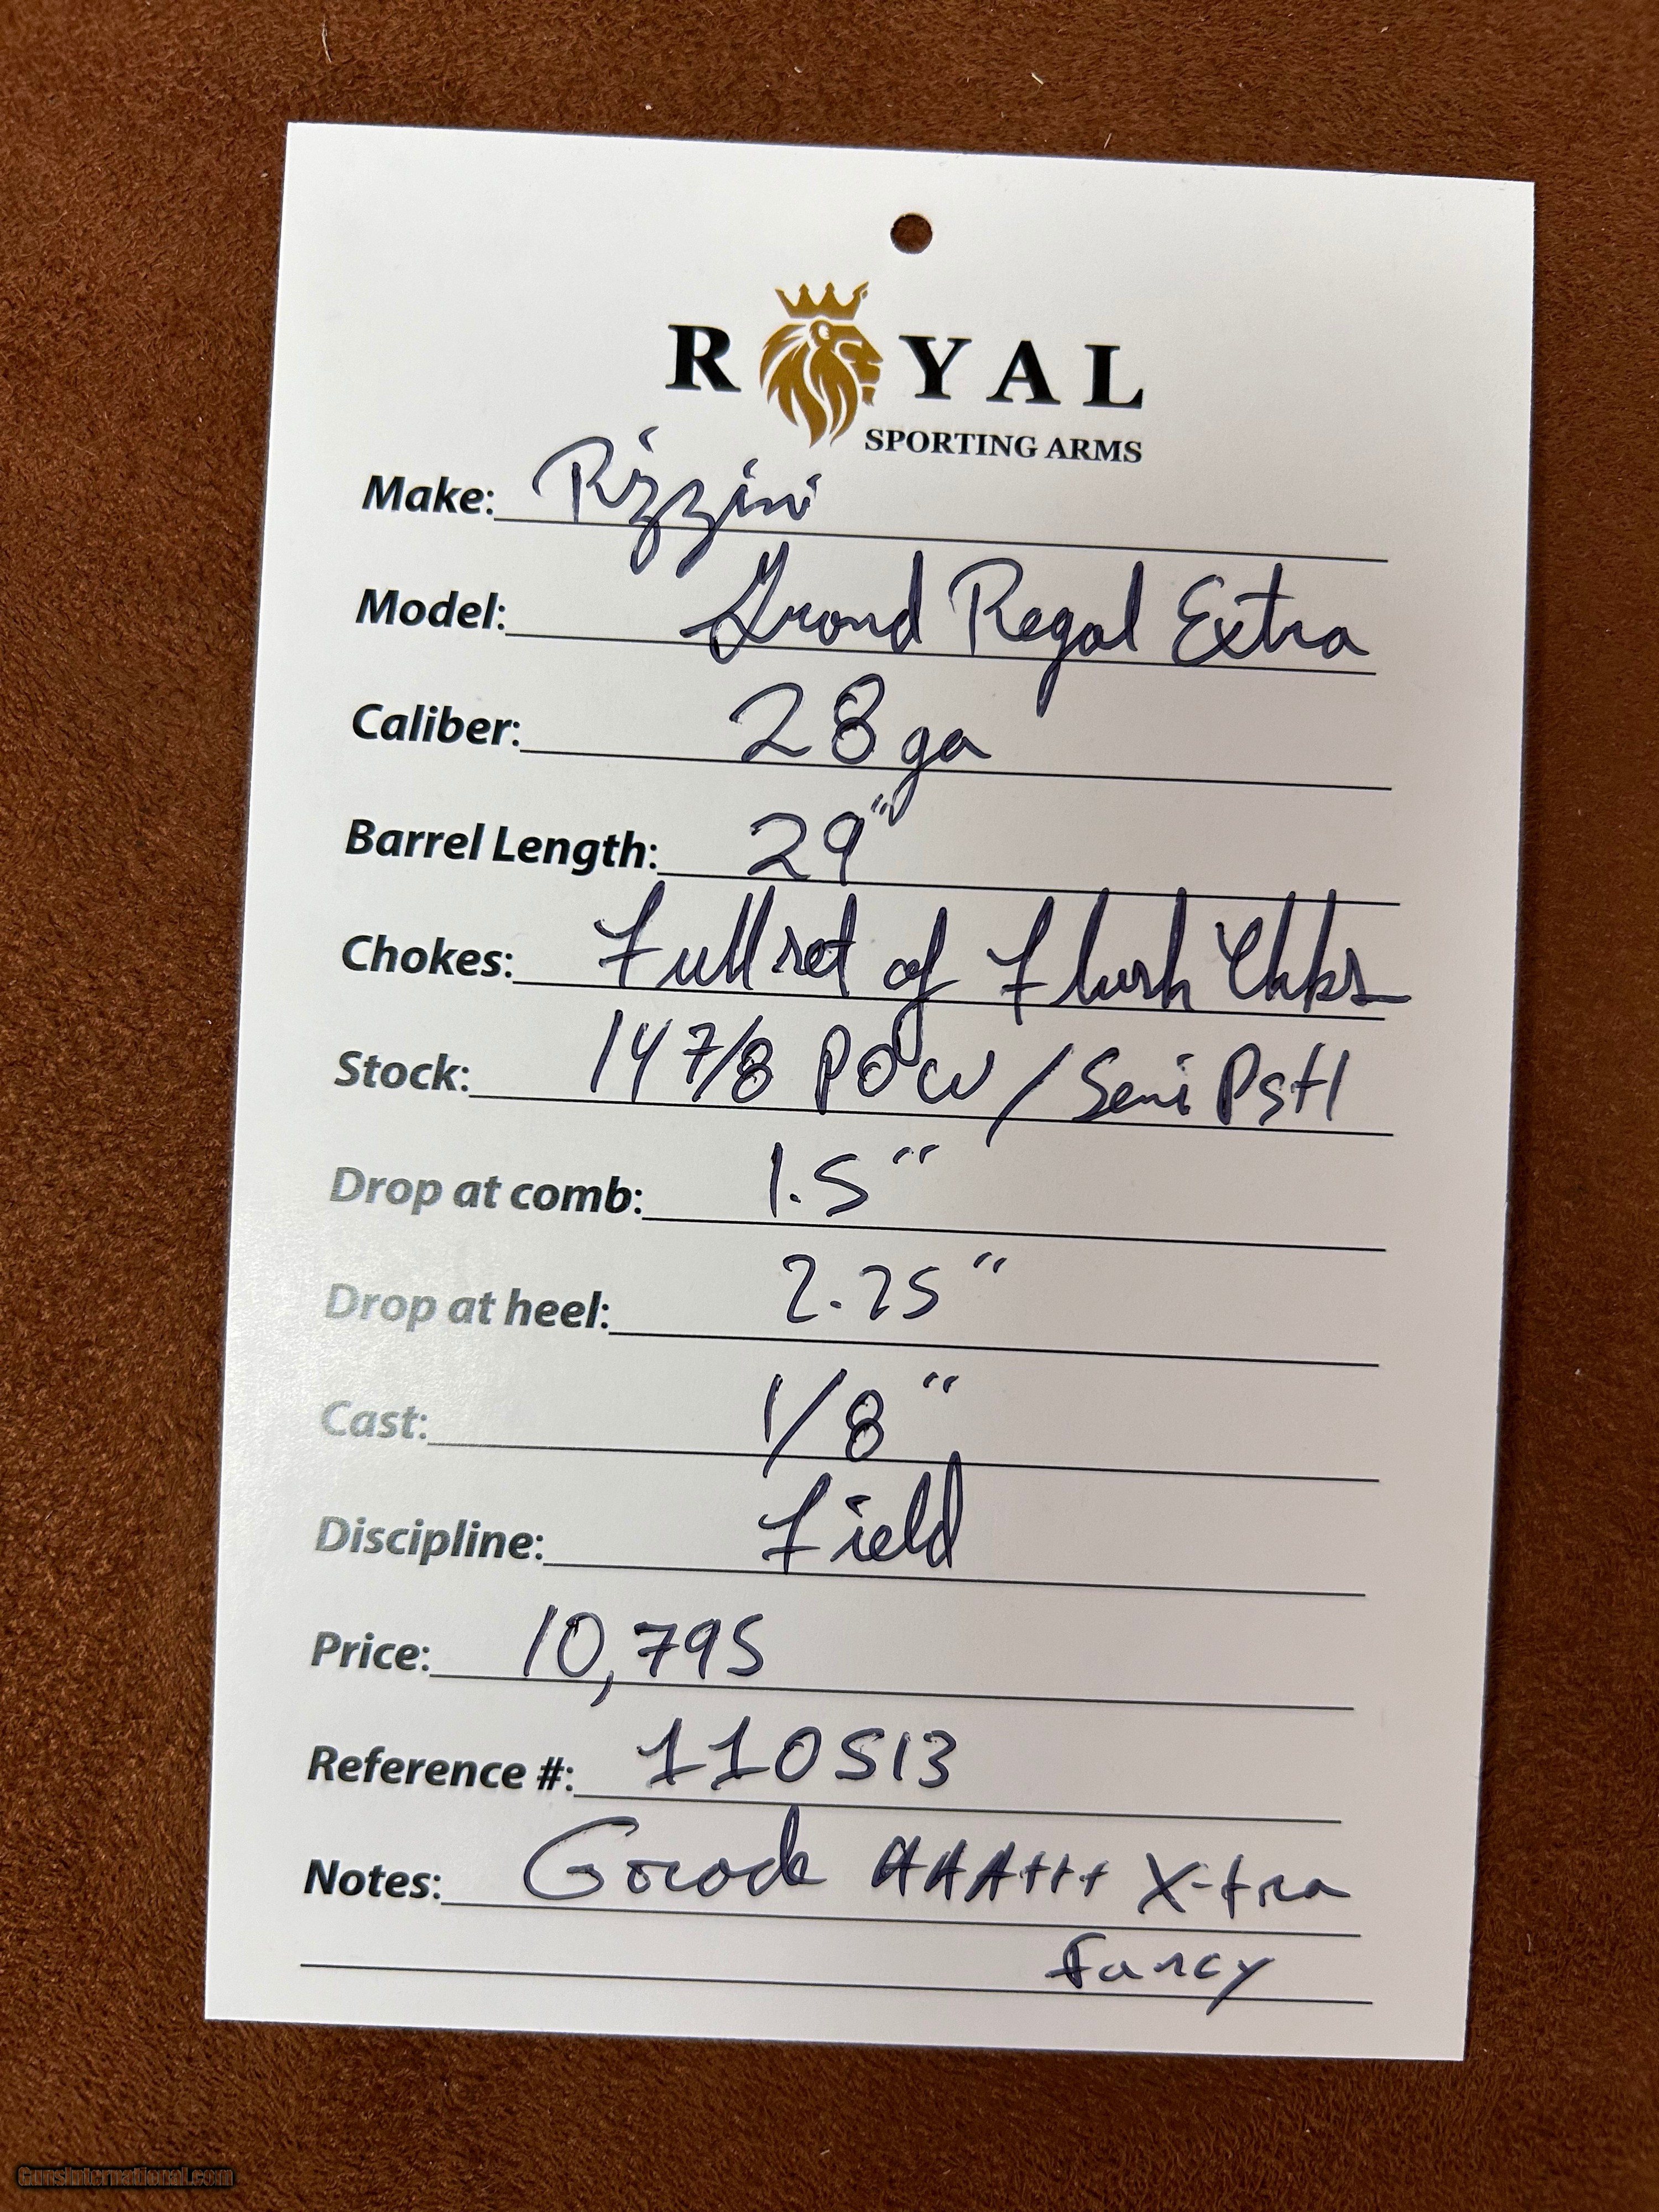 ROYAL
SPORTING ARMS
Make: Rizzini
Model: Grand Regal Extra
Caliber: 28 ga
Barrel Length: 29"
Chokes: Full set of Flush
Stock: 14 7/8 POW / Semi
Drop at comb: 1.5"
Drop at heel: 2.25"
Cast: 1/8"
Discipline: Field
Price: 10,795
Reference #: 110513
Notes: Grade AAA+++ X-tra
Fancy
GunsInternational.com